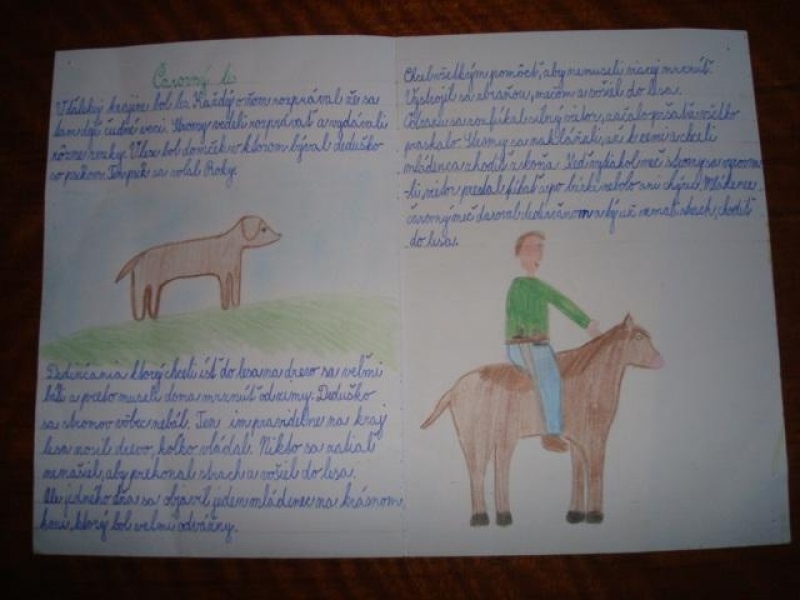 Čarovný le
V ďalekej krajine bol les. Každý o ňom rozprával že sa
tam dejú čudné veci. Stromy vedeli rozprávať a vydávali
rôzne zvuky. V lese bol domček v ktorom býval deduško
so psíkom. Ten psík sa volal Roky.
Dedinčania ktorý chceli ísť do lesa na drevo sa veľmi
báli a preto museli doma mrznúť od zimy. Deduško
sa stromov vôbec nebál. Ten im pravidelne na kraj
lesa nosil drevo, koľko vládal. Nikto sa zatiaľ
nenašiel, aby prekonal strach a vošiel do lesa.
Ale jedného dňa sa objavil jeden mládenec na krásnom
koni, ktorý bol veľmi odvážny.
Chcel všetkým pomôcť, aby nemuseli viacej mrznúť.
Vystrojil sa zbraňou, mečom a vošiel do lesa.
sa rozfúkal silný vietor, začalo pršať všetko
praskalo. Stromy sa nakláňali, až k zemi a chceli
mládenca zhodiť z koňa. Keď vytiahol meč stromy sa vzpriam-
ili, vietor prestal fúkať a po búrke nebolo ani chýru. Mládenec
čarovný meč daroval dedinčanom aby už nemali strach, chodiť
do lesa.